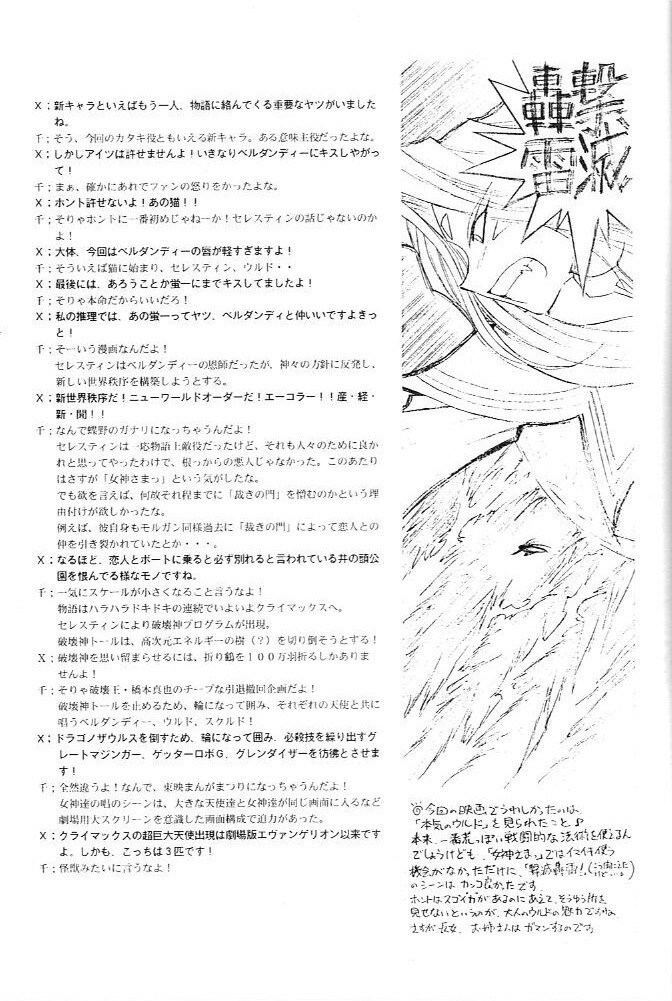 X；新キャラといえばもう一人、物語に絡んでくる重要なヤツがいました
ね。
千；そう、今回のカタキ役ともいえる新キャラ。ある意味主役だったよな。
X；しかしアイツは許せませんよ！いきなりベルダンディーにキスしやがっ
て！
千；まぁ、確かにあれでファンの怒りをかったよな。
X；ホント許せないよ！あの猫！！
千；そりゃホントに一番初めじゃねーか！セレスティンの話じゃないのか
よ！
X；大体、今回はベルダンディーの唇が軽すぎますよ！
千；そういえば猫に始まり、セレスティン、ウルド・・
X；最後には、あろうことか蛍一にまでキスしてましたよ！
千；そりゃ本命だからいいだろ！
X；私の推理では、あの蛍一ってヤツ、ベルダンディと仲いいですよきっ
と！
千；そーいう漫画なんだよ！
セレスティンはベルダンディーの恩師だったが、神々の方針に反発し、
新しい世界秩序を構築しようとする。
X；新世界秩序だ！ニューワールドオーダーだ！エーコラー！！産・経・
新・聞！！
千；なんで蝶野のガナリになっちゃうんだよ！
セレスティンは一応物語上敵役だったけど、それも人々のために良か
れと思ってやったわけで、根っからの悪人じゃなかった。このあたり
はさすが「女神さまっ」という気がしたな。
でも欲を言えば、何故それ程までに「裁きの門」を憎むのかという理
由付けが欲しかったな。
例えば、彼自身もモルガン同様過去に「裁きの門」によって恋人との
仲を引き裂かれていたとか・・・。
X；なるほど、恋人とボートに乗ると必ず別れると言われている井の頭公
園を恨んでる様なモノですね。
千；一気にスケールが小さくなること言うなよ！
物語はハラハラドキドキの連続でいよいよクライマックスへ。
セレスティンにより破壊神プログラムが出現。
破壊神トールは、高次元エネルギーの樹（？）を切り倒そうとする！
X；破壊神を思い留まらせるには、折り鶴を１００万羽折るしかありま
せんよ！
千；そりゃ破壊王・橋本真也のチープな引退撤回企画だよ！
破壊神トールを止めるため、輪になって囲み、それぞれの天使と共に
唱うベルダンディー、ウルド、スクルド！
X；ドラゴノザウルスを倒すため、輪になって囲み、必殺技を繰り出すグ
レートマジンガー、ゲッターロボＧ、グレンダイザーを彷彿とさせま
す！
千；全然違うよ！なんで、東映まんがまつりになっちゃうんだよ！
女神達の唱のシーンは、大きな天使達と女神達が同じ画面に入るなど
劇場用大スクリーンを意識した画面構成で迫力があった。
X；クライマックスの超巨大天使出現は劇場版エヴァンゲリオン以来です
よ。しかも、こっちは３匹です！
千；怪獣みたいに言うなよ！
撃滅
轟雷
◎今回の映画でうれしかったのは、
「本気のウルド」を見られたこと♪
本来、一番荒っぽい戦闘的な法術を使えるん
でしょうけども、「女神さまっ」ではイマイチ使う
機会がなかっただけに、「撃滅轟雷！」
のシーンは、カッコ良かったです。
ホントはスゴイ力があるのにあえて、そうゆう所を
見せないというのが、大人のウルドの魅力ですよね。
さすが長女、お姉さんはガマンするのです